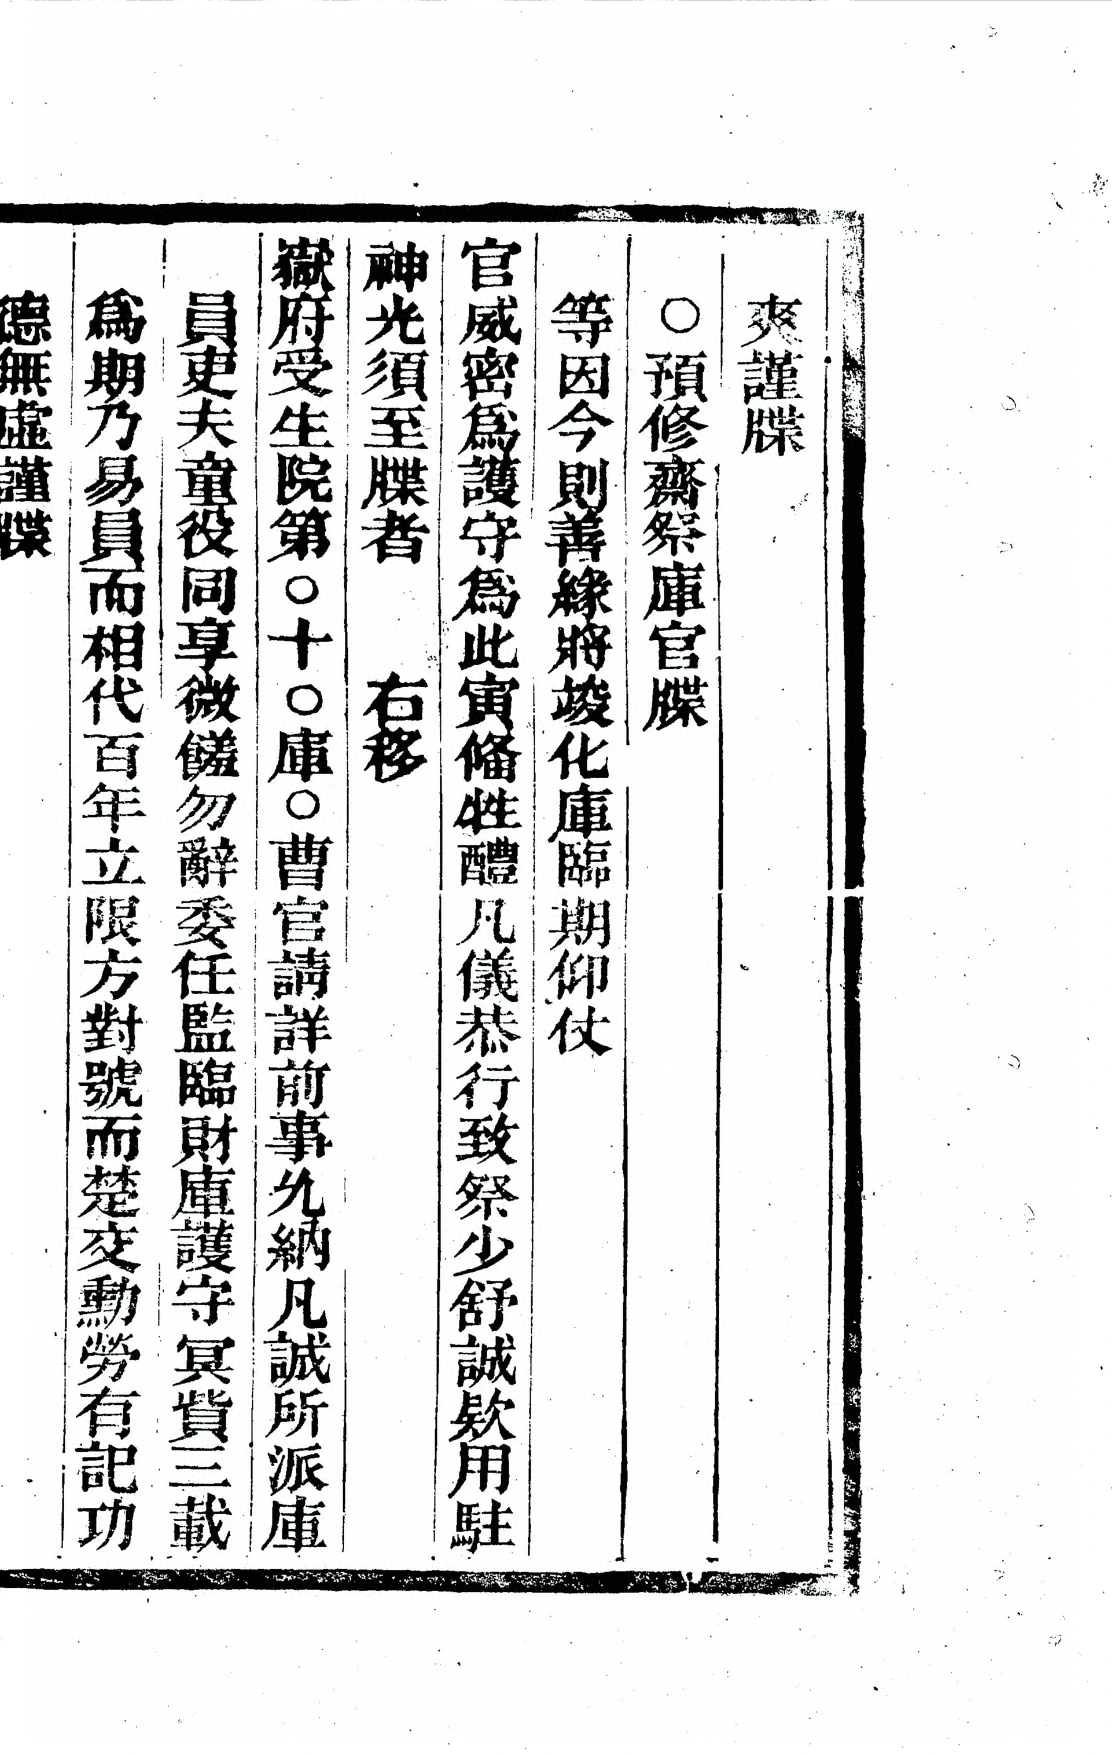 爽謹牒
○預修齋祭庫官牒
等因今則善緣將竣化庫臨期仰仗
官威密爲護守爲此寅偹牲醴凡儀恭行致祭少舒誠欵用駐
神光須至牒者　　右移
嶽府受生院第○十○庫○曹官請詳前事允納凡誠所派庫
員吏夫童役同享微饈勿辭委任監臨財庫護守冥貲三載
爲期乃易員而相代百年立限方對號而楚交勳勞有記功
德無虛謹牒